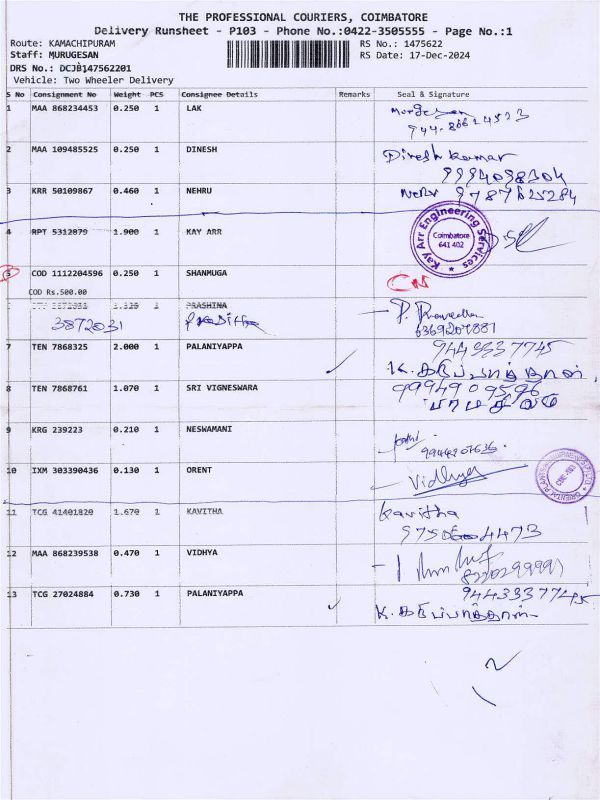 THE PROFESSIONAL COURIERS, COIMBATORE
Delivery Runsheet - P103 - Phone No.:0422-3505555 - Page No.:1
Route: KAMACHIPURAM RS No.: 1475622
Staff: MURUGESAN RS Date: 17-Dec-2024
DRS No.: DCJB147562201
Vehicle: Two Wheeler Delivery
S No Consignment No Weight PCS Consignee Details Remarks Seal & Signature
1 MAA 868234453 0.250 1 LAK
2 MAA 109485525 0.250 1 DINESH Dinesh Kumar
9994098304
3 KRR 50109867 0.460 1 NEHRU Nehru 9787625284
4 RPT 5312879 1.900 1 KAY ARR Kay Arr Engineering Services Coimbatore 641 402
5 COD 1112204596 0.250 1 SHANMUGA CN
COD Rs.500.00
1.325 1 PRASHINA
3872031
6369207881
7 TEN 7868325 2.000 1 PALANIYAPPA 9443337745
K. கருப்பாத்தாள்
8 TEN 7868761 1.070 1 SRI VIGNESWARA 9994909596
9 KRG 239223 0.210 1 NESWAMANI
10 IXM 303390436 0.130 1 ORENT Vidhya
11 TCG 41401820 1.670 1 KAVITHA Kavitha
12 MAA 868239538 0.470 1 VIDHYA
13 TCG 27024884 0.730 1 PALANIYAPPA 9443337745
K. கருப்பாத்தாள்